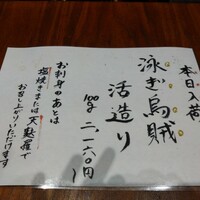 本日入荷
泳ぎ烏賊
活造り
100g 二、一六〇円
お刺身のあとは
塩焼きまたは天麩羅で
お召し上がりいただけます